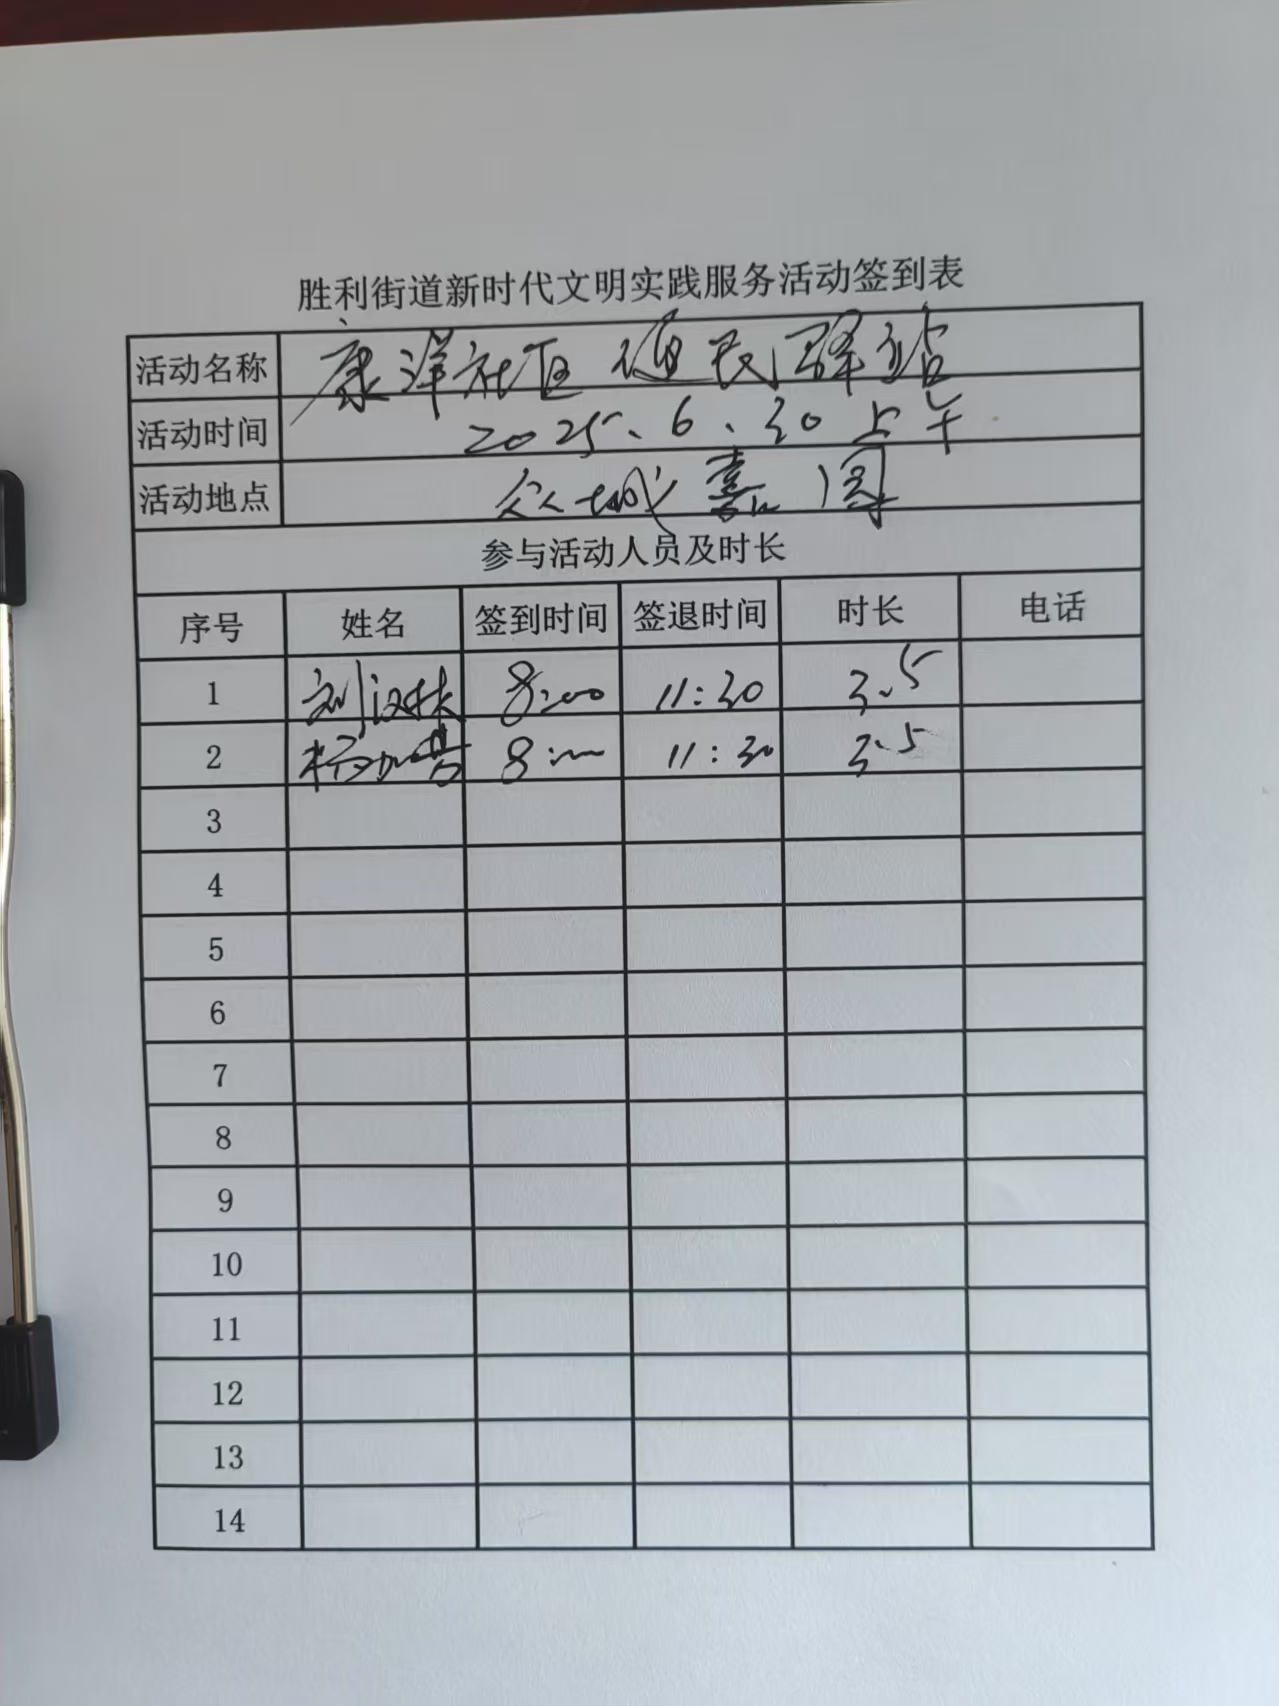 胜利街道新时代文明实践服务活动签到表
活动名称 康洋社区便民驿站
活动时间 2025、6、30上午
活动地点 众城嘉园
参与活动人员及时长
序号 姓名 签到时间 签退时间 时长 电话
1 刘汉林 8:00 11:30 3.5
2 8:00 11:30 3.5
3
4
5
6
7
8
9
10
11
12
13
14